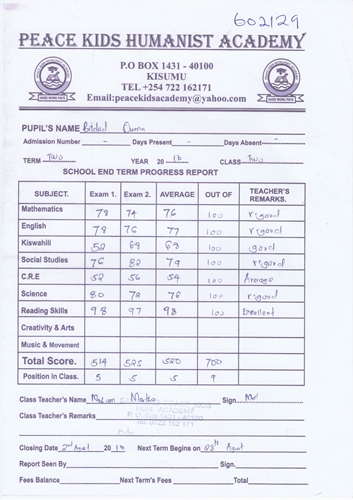 602129
PEACE KIDS HUMANIST ACADEMY
P.O BOX 1431 - 40100
KISUMU
TEL +254 722 162171
Email:peacekidsacademy@yahoo.com
HARD WORK PAYS HARD WORK PAYS
PUPIL'S NAME
Admission Number - Days Present - Days Absent -
TERM Two YEAR 20 CLASS Two
SCHOOL END TERM PROGRESS REPORT
SUBJECT. Exam 1. Exam 2. AVERAGE OUT OF TEACHER'S REMARKS.
Mathematics 78 74 76 100 v.good
English 78 76 77 100 v.good
Kiswahili 69 100 good
Social Studies 76 82 79 100 v.good
C.R.E 52 56 54 100 Average
Science 80 72 76 100 v.good
Reading Skills 98 97 98 100 Excellent
Creativity & Arts
Music & Movement
Total Score. 514 525 520 700
Position in Class. 5 5 5 9
Class Teacher's Name Sign.
Class Teacher's Remarks
ACADEMY
P.O. Box 1431 - 40100
Tel: 0722 162 171
Closing Date 2nd 20 Next Term Begins on
Report Seen By Sign.
Fees Balance Next Term's Fees Total